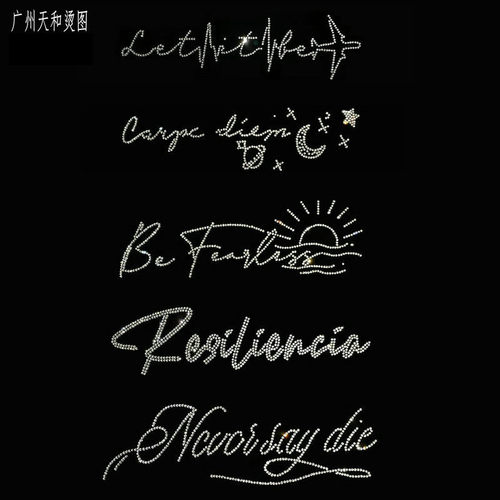 广州天和烫图
Let it be
Carpe diem
Be Fearless
Resiliencia
Never say die